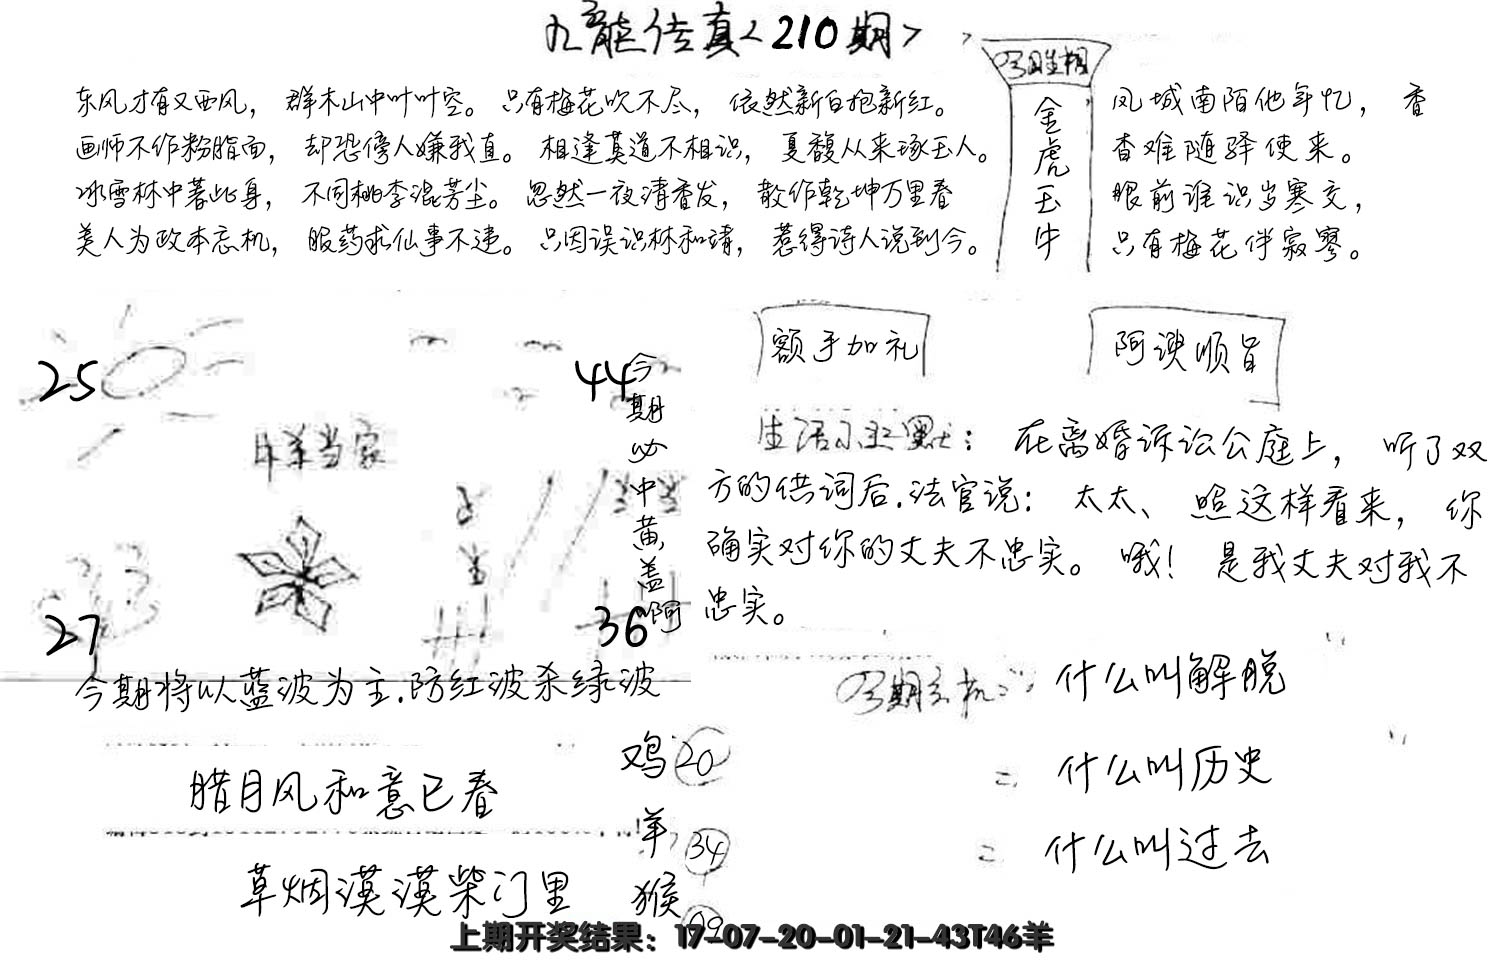 九龍传真<210期>
东风才有又西风，群木山中叶叶空。只有梅花吹不尽，依然新白抱新红。
画师不作粉脂面，却恐傍人嫌我直。相逢莫道不相识，夏馥从来琢玉人。
冰雪林中著此身，不同桃李混芳尘。忽然一夜清香发，散作乾坤万里春
美人为政本忘机，服药求仙事不违。只因误识林和靖，惹得诗人说到今。
金虎玉牛
凤城南陌他年忆，香
香难随驿使来。
眼前谁识岁寒交，
只有梅花伴寂寥。
额手加礼
阿谀顺旨
25
44
今期必中黄盖啊
羊当家
27
36
生活小幽默：在离婚诉讼公庭上，听了双
方的供词后.法官说：太太、照这样看来，你
确实对你的丈夫不忠实。哦！是我丈夫对我不
忠实。
今期将以蓝波为主.防红波杀绿波
今期玄机：什么叫解脱
什么叫历史
什么叫过去
腊月风和意已春
草烟漠漠柴门里
鸡 20
羊 34
猴 09
上期开奖结果：17-07-20-01-21-43T46羊